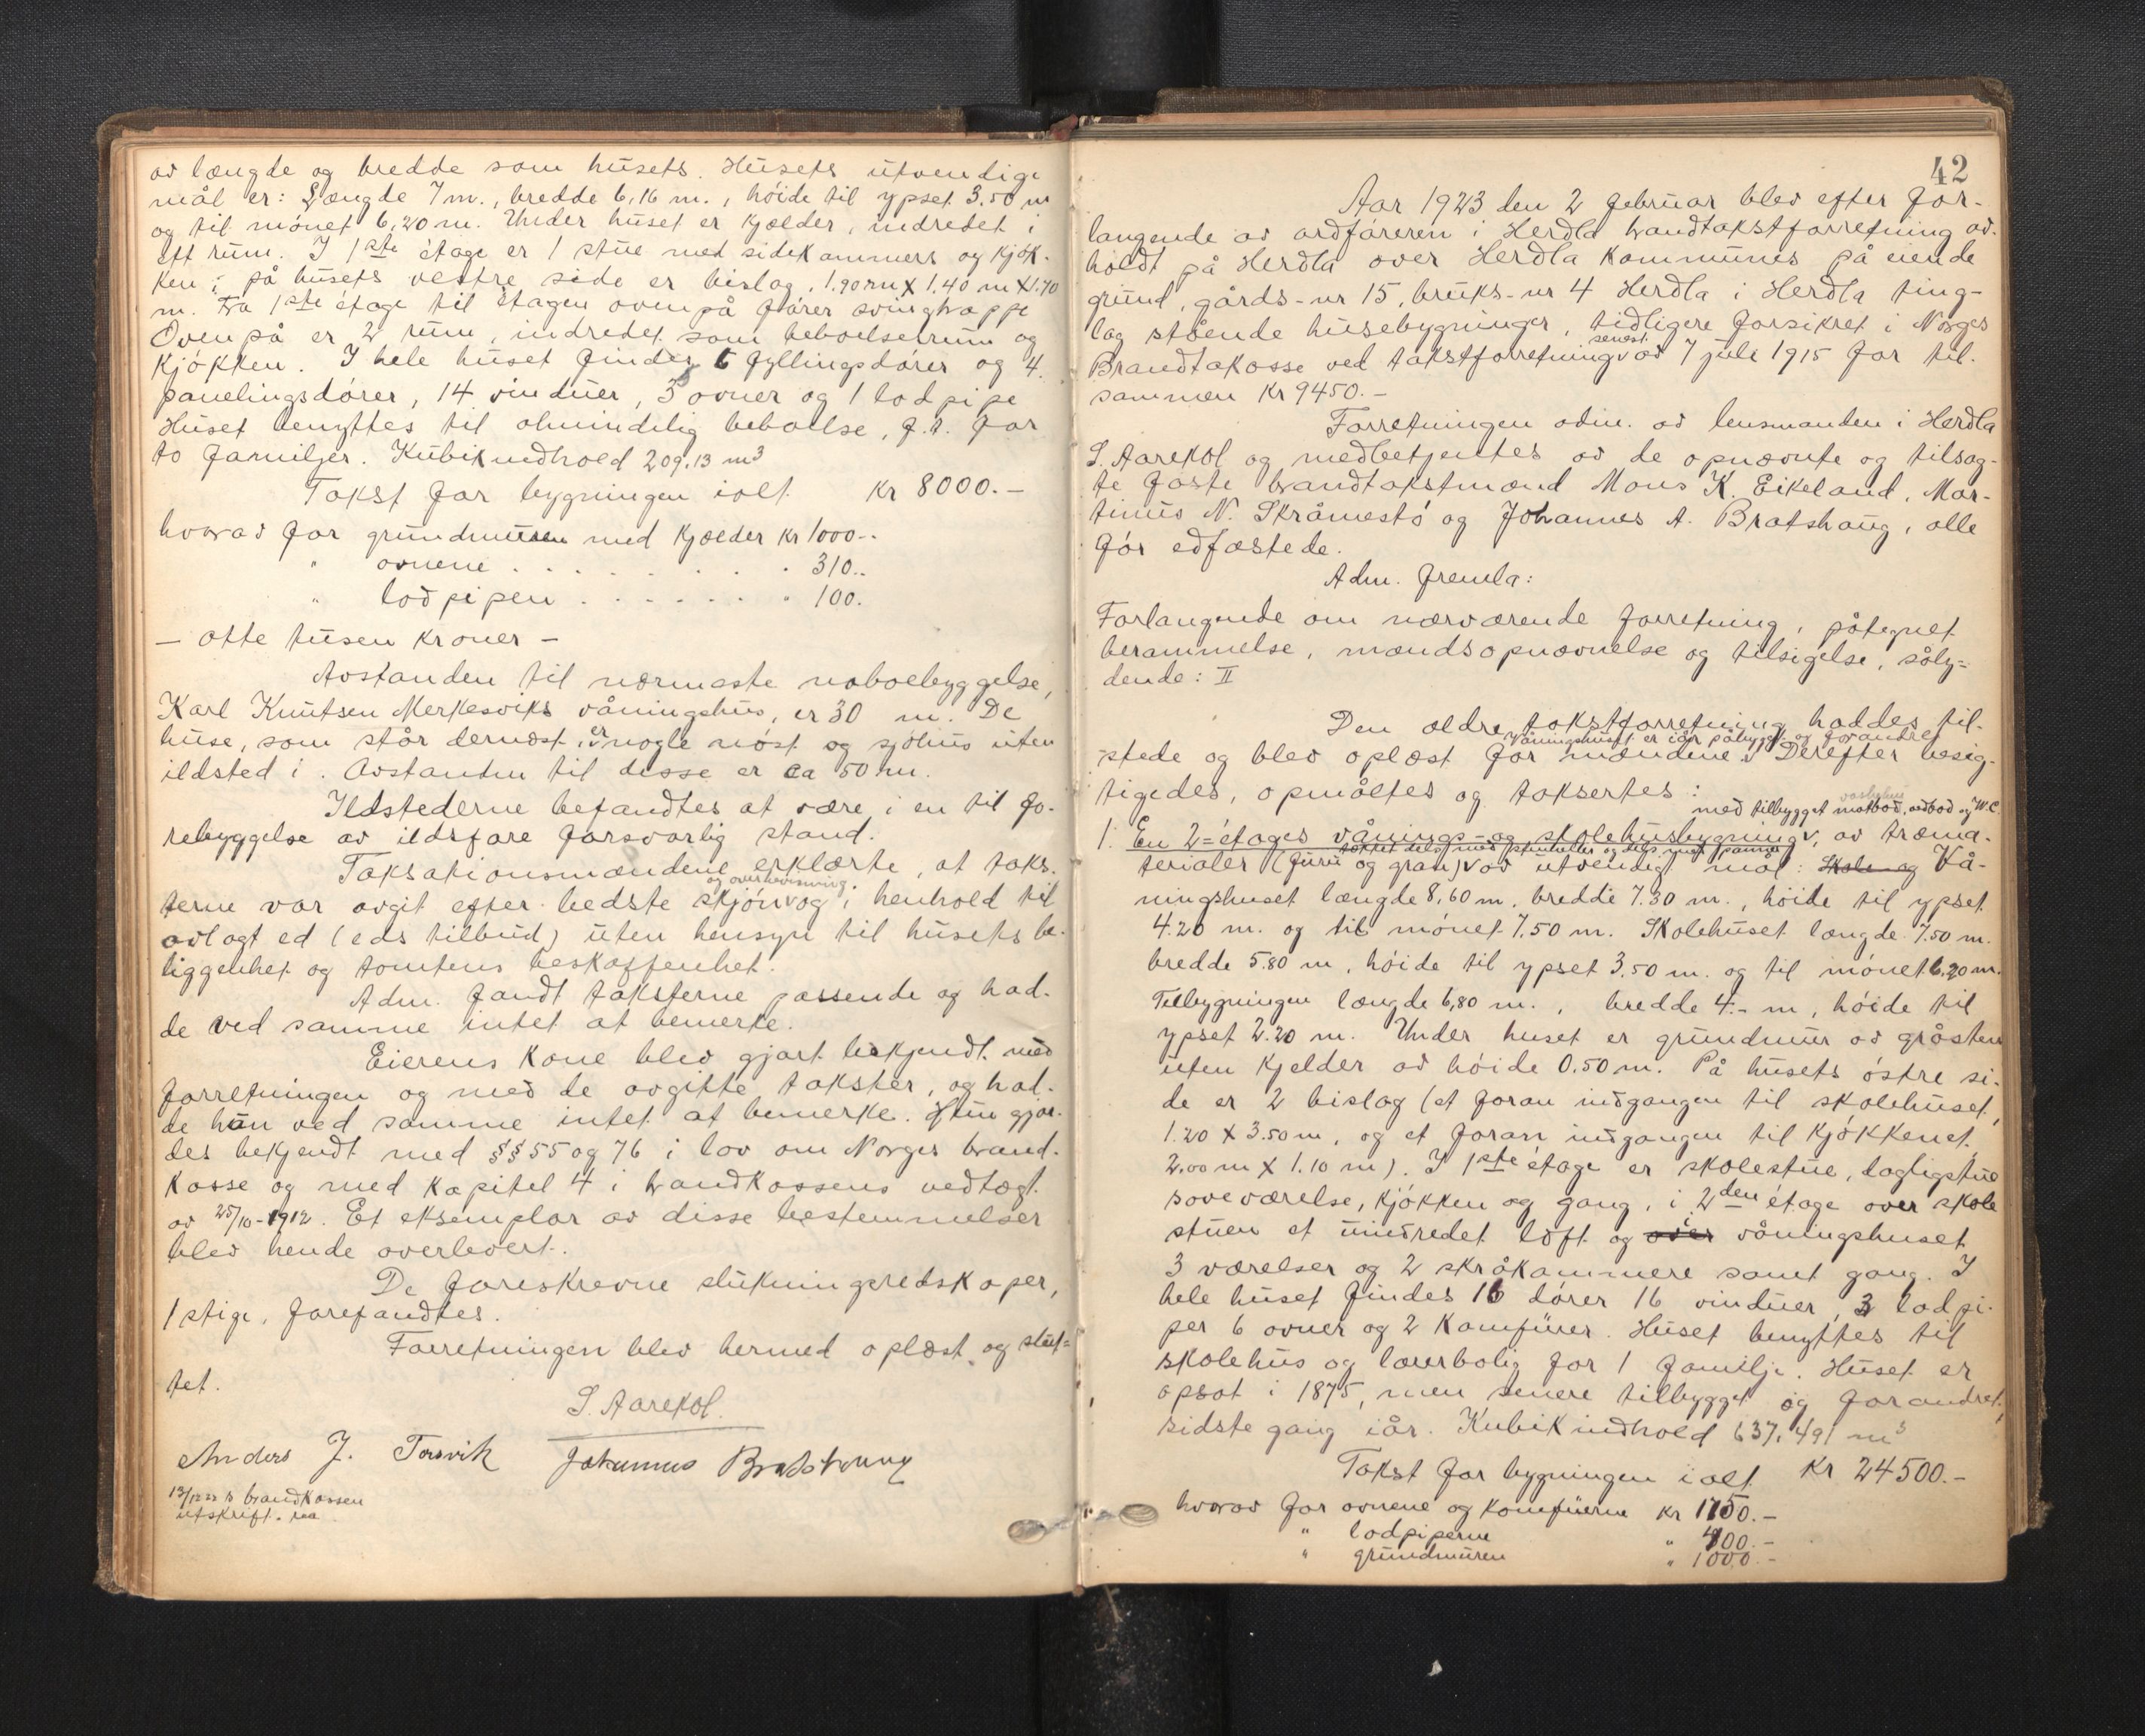 av længde og bredde som husets. Husets utvendige
mål er: Længde 7 m., bredde 6,16 m., höide til ypset 3.50 m
og til mönet 6,20 m. Under huset er kjælder, indredet i
ett rum. I 1ste étage er 1 stue med sidekammers og kjök-
ken; på husets vestre side er bislag, 1.90 m x 1.40 m x 1.70
m. Fra 1ste étage til étagen ovenpå förer svingtrappe
Ovenpå er 2 rum, indredet som beboelsesrum og
kjökken. I hele huset findes 6 fyllingsdörer og 4
panelingsdörer, 14 vinduer, 3 ovner og 1 lodpipe
Huset benyttes til almindelig beboelse, f.t. for
to familjer. Kubikindhold 209,13 m3
Takst for bygningen ialt kr 8000.-
hvorav for grundmuren med kjælder kr 1000.-
" ovnene . . . . . . . 310.-
" lodpipen . . . . . . " 100.
- otte tusen kroner -
Avstanden til nærmeste nabobebyggelse,
Karl Knutsen Merkesviks våningshus, er 30 m. De
huse, som står dernæst, er nogle nöst og sjöhus uten
ildsted i. Avstanden til disse er ca 50 m.
Ildstederne befandtes at være i en til fo-
rebyggelse av ildsfare forsvarlig stand.
Taksationsmændene erklærte, at taks-
og overbevisning
terne var avgit efter bedste skjön og i henhold til
avlagt ed (eds tilbud) uten hensyn til husets be-
liggenhet og tomtens beskaffenhet.
Adm. fandt taksterne passende og had-
de ved samme intet at bemerke.
Eierens kone blev gjort bekjendt med
forretningen og med de avgitte takster, og had-
de hun ved samme intet at bemerke. Hun gjor-
des bekjendt med §§ 55 og 76 i lov om Norges brand-
kasse og med kapitel 4 i brandkassens vedtægt
av 25/10-1912. Et eksemplar av disse bestemmelser
blev hende overlevert.
De foreskrevne slukningsredskaper,
1 stige, forefandtes.
Forretningen blev hermed oplæst og slut-
tet.
S. Aarekol.
Anders J. Torsvik Johannes Bratshaug
brandkassen
utskrift.
42
Aar 1923 den 2 februar blev efter for-
langende av ordföreren i Herdla brandtakstforretning av-
holdt på Herdla over Herdla kommunes på eiende
grund, gårds-nr 15, bruks-nr 4 Herdla i Herdla ting-
lag stående husebygninger, tidligere forsikret i Norges
senest
Brandtakasse ved takstforretning av 7 juli 1915 for til-
sammen kr 9450.-
Forretningen adm. av lensmanden i Herdla
S. Aarekol og medbetjentes av de opnævnte og tilsag-
te faste brandtakstmænd Mons K. Eikeland, Mar-
tinus N. Skråmestö og Johannes A. Bratshaug, alle
för edfæstede.
Adm. fremla:
Forlangende om nærværende forretning, påtegnet
berammelse, mændsopnævnelse og tilsigelse, såly-
dende: II
Den ældre takstforretning haddes til-
Våningshuset er iår påbygget og forandret
stede og blev oplæst for mændene. Derefter besig-
tigedes, opmåltes og taksertes:
vaskehus
med tilbygget matbod, vedbod og W.C.
1. En 2-étages vånings- og skolehusbygning, av træma-
terialer (furu og gran) av utvendigt mål: Skole og Vå-
ningshuset længde 8,60 m, bredde 7.30 m., höide til ypset
4.20 m. og til mönet 7.50 m. Skolehuset længde 7.50 m.
bredde 5.80 m, höide til ypset 3.50 m. og til mönet 6.20 m.
Tilbygningen længde 6,80 m., bredde 4.- m, höide til
ypset 2.20 m. Under huset er grundmur av gråsten
uten kjelder av höide 0.50 m. På husets östre si-
de er 2 bislag (et foran indgangen til skolehuset,
1.20 x 3.50 m, og et foran indgangen til kjökkenet,
2.00 m x 1.10 m). I 1ste étage er skolestue, dagligstue
soveværelse, kjökken og gang, i 2den étage over skole
stuen et uindredet loft og over i våningshuset
3 værelser og 2 skråkammere samt gang. I
hele huset findes 16 dörer 16 vinduer, 3 lodpi-
per 6 ovner og 2 komfurer. Huset benyttes til
skolehus og lærerbolig for 1 familje. Huset er
opsat i 1875, men senere tilbygget og forandret,
sidste gang iår. Kubikindhold 637,491 m3
Takst for bygningen ialt kr 24500.-
hvorav for ovnene og komfurerne kr 1750.-
" lodpiperne " 400.-
" grundmuren " 1000.-